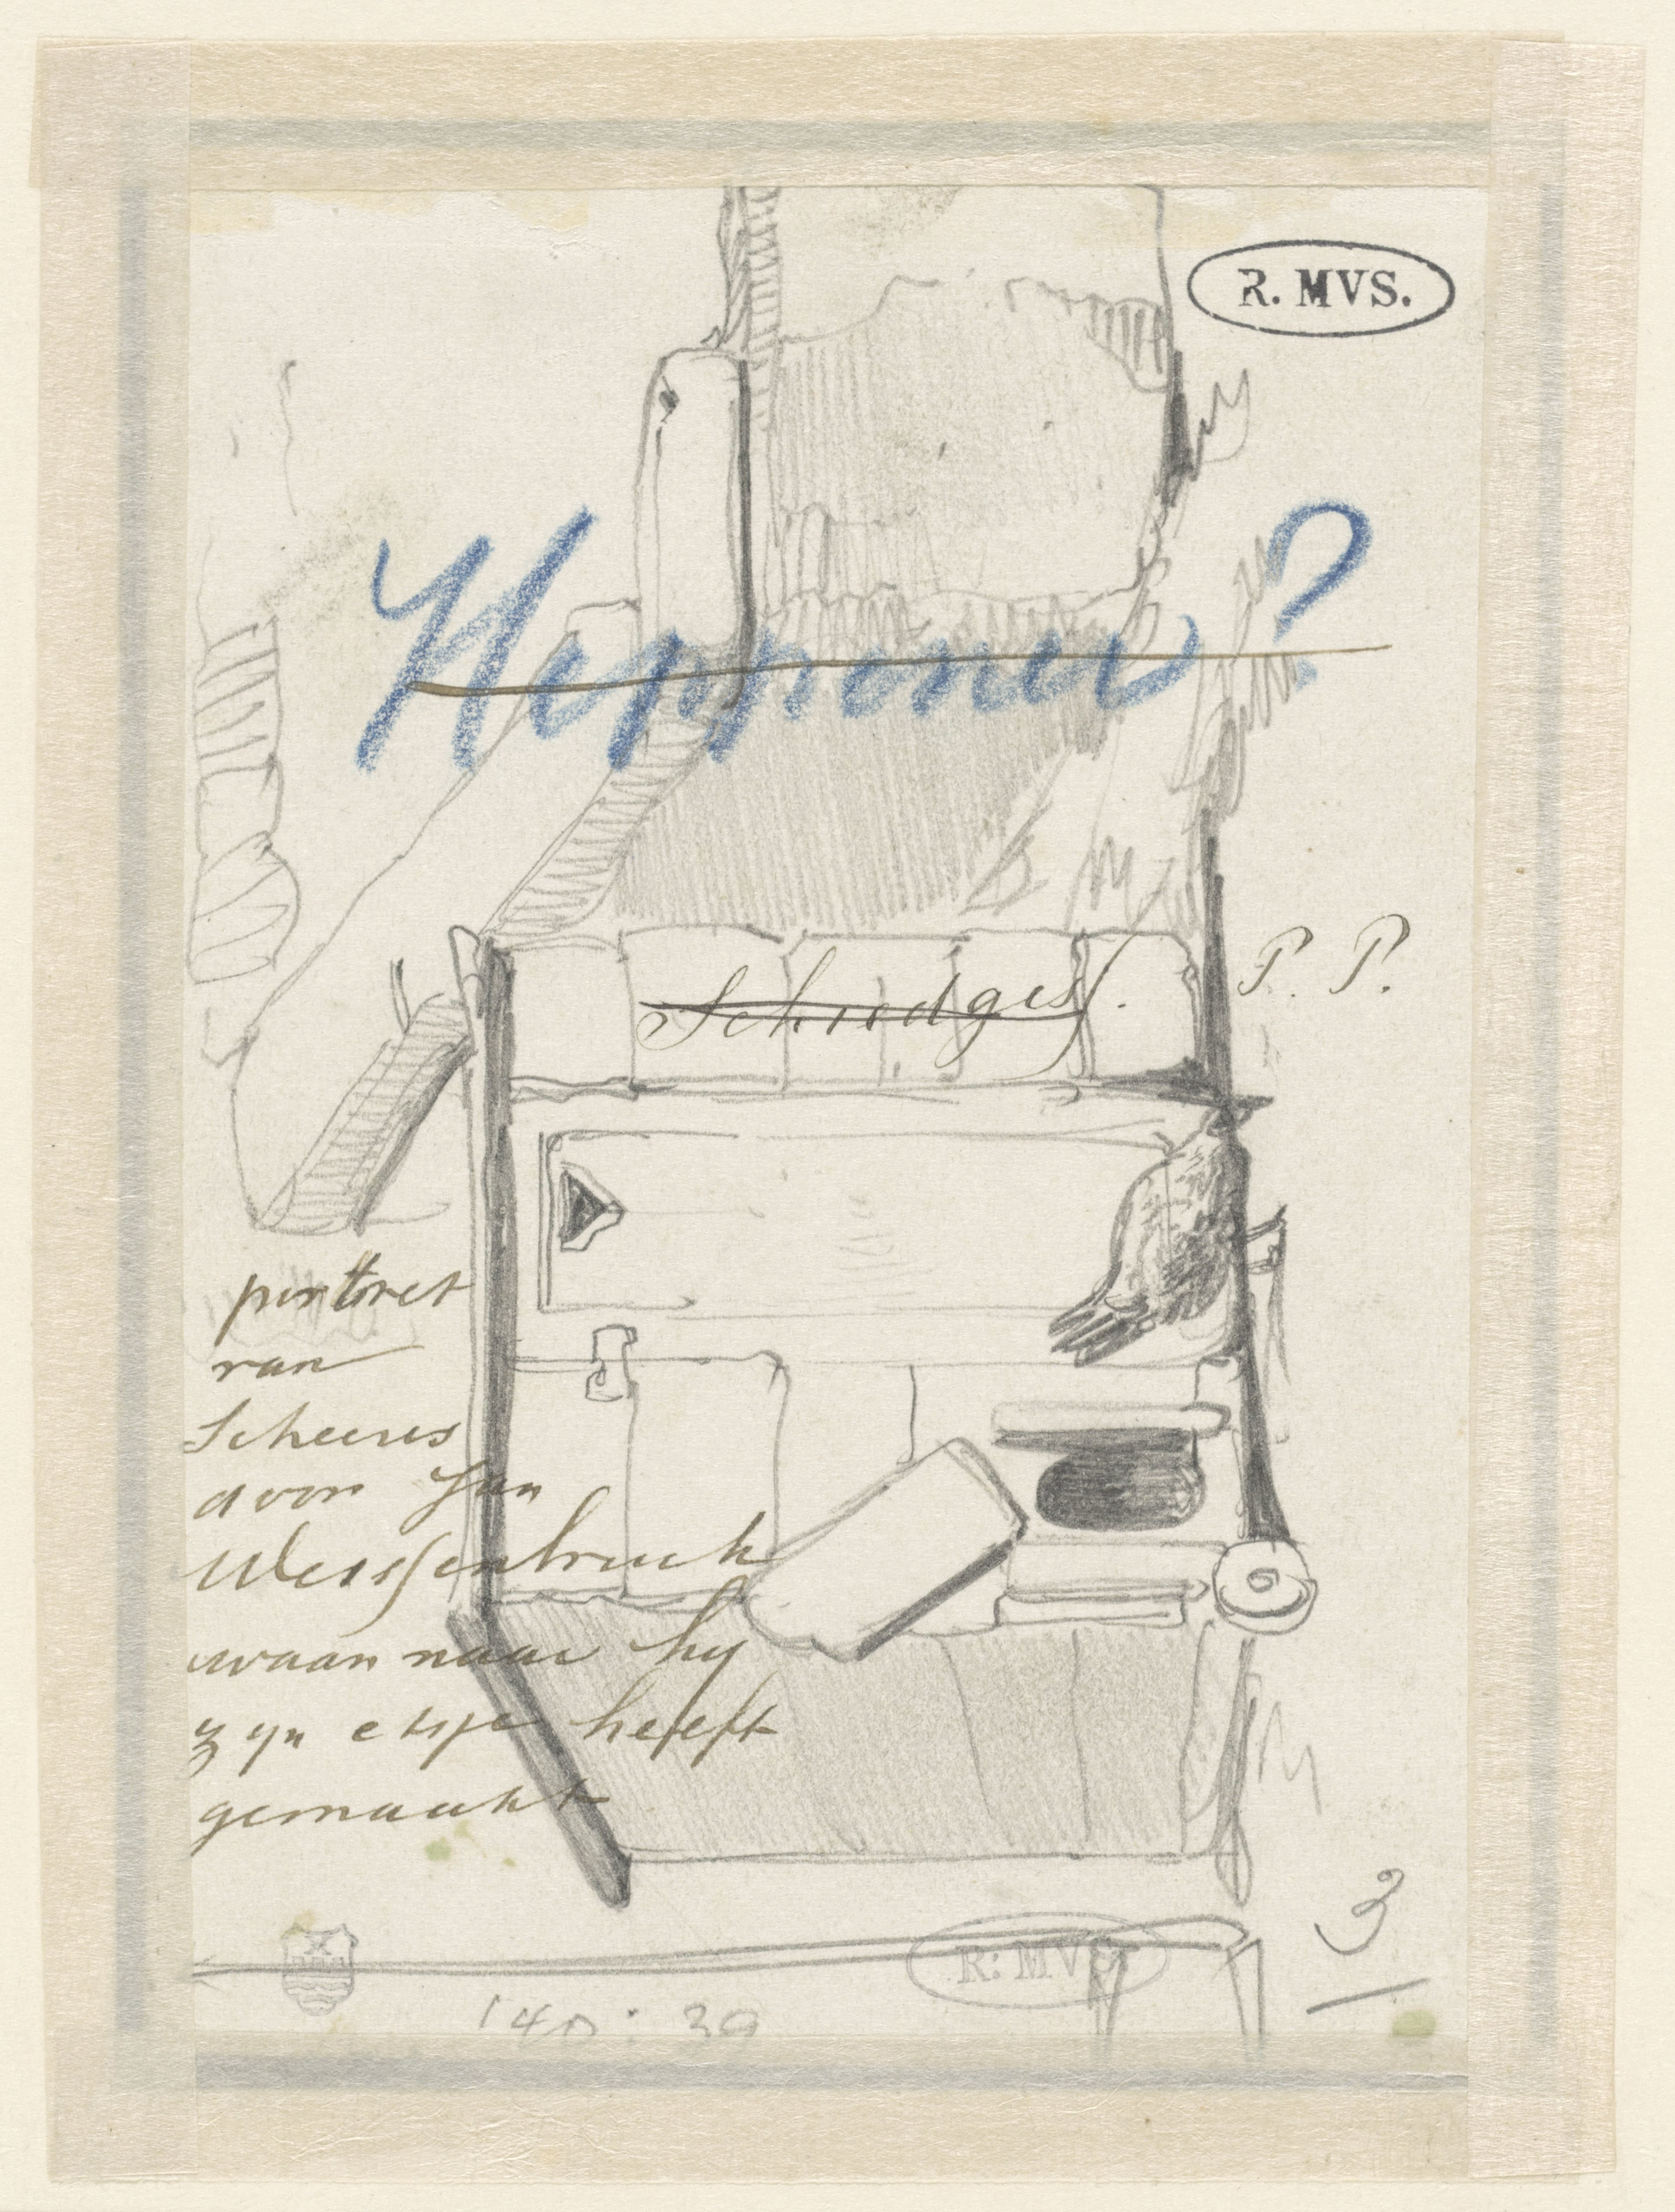 R. MVS.
Heppener?
Schoedges.
P. P.
portret
van
Scheeres
door Jan
Weissenbruch
waarnaar hy
zyn etsje heeft
gemaakt
3
R: MVS
140: 39